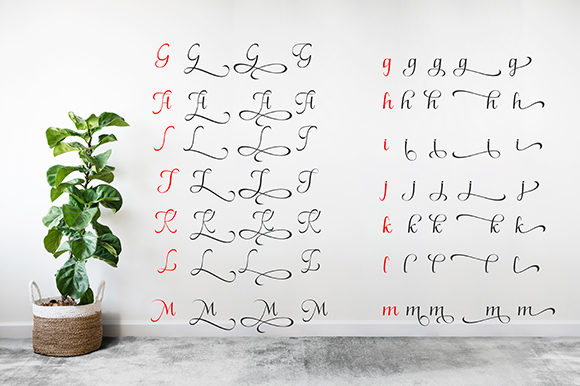 G G G G
H H H H
I I I I
J J J J
K K K K
L L L L
M M M M
g g g g g
h h h h h
i i i i i
j j j j j
k k k k k
l l l l l
m m m m m